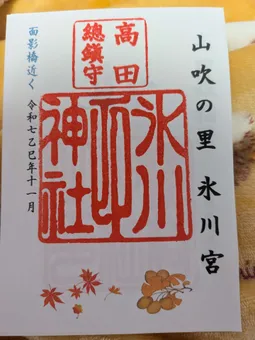 山吹の里 氷川宮
高田
總鎮守
氷川
神社
面影橋近く
令和七乙巳年十一月